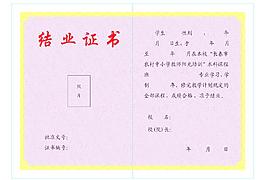 结业证书
照
片
批准文号：
证书编号：
学生 性别 ， 年
月 日生，于 年 月
至 年 月在本校“长春市
农村中小学教师阳光培训”本科课程
班 专业学习，学
制 年，修完教学计划规定的
全部课程，成绩合格，准予结业。
校 名：
校（院）长：
年 月 日